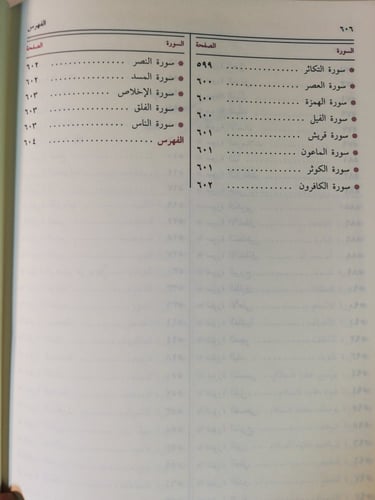 ٦٠٦
الفهرس
السورة الصفحة
سورة التكاثر ٥٩٩
سورة العصر ٦٠٠
سورة الهمزة ٦٠٠
سورة الفيل ٦٠٠
سورة قريش ٦٠١
سورة الماعون ٦٠١
سورة الكوثر ٦٠١
سورة الكافرون ٦٠٢
السورة الصفحة
سورة النصر ٦٠٢
سورة المسد ٦٠٢
سورة الإخلاص ٦٠٣
سورة الفلق ٦٠٣
سورة الناس ٦٠٣
الفهرس ٦٠٤